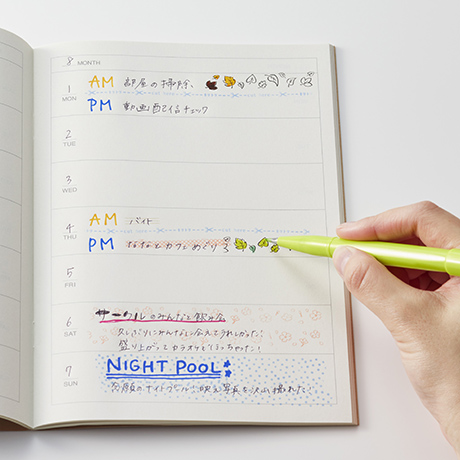 8 MONTH
1 MON
AM 部屋の掃除、
PM 動画配信チェック
2 TUE
3 WED
4 THU
AM バイト
PM ななとカフェめぐり
5 FRI
6 SAT
サークルのみんなと飲み会
久しぶりにみんなに会えてうれしかった!
盛り上がってカラオケまで
7 SUN
NIGHT POOL
念願のナイトプール!映え写真を沢山撮れた!